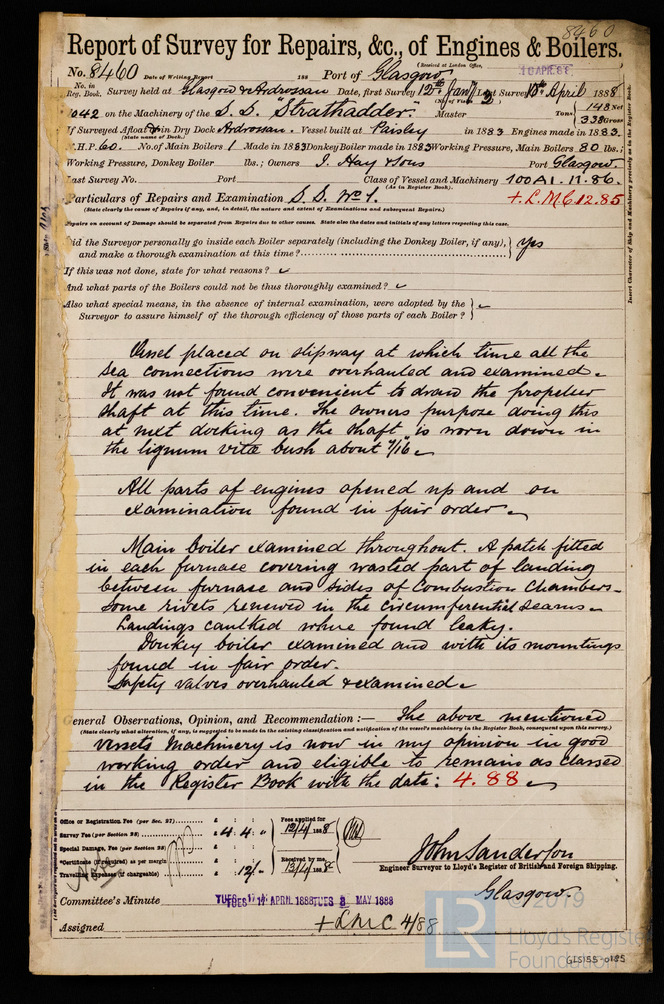 8460
Report of Survey for Repairs, &c., of Engines & Boilers.
(Received at London Office,
No. 8460 Date of Writing Report 188 Port of Glasgow
18 APR 88
No. in Reg. Book. Survey held at Glasgow & Ardrossan Date, first Survey 12th Jany Last Survey 10th April 1888
(No. of Visits 2)
1042 on the Machinery of the S.S. "Strathadder." Master Tons 148 Net 338 Gross
If Surveyed Afloat or in Dry Dock Ardrossan. Vessel built at Paisley in 1883 Engines made in 1883.
(State name of Dock.)
N.H.P. 60. No. of Main Boilers 1 Made in 1883 Donkey Boiler made in 1883 Working Pressure, Main Boilers 80 lbs.;
Working Pressure, Donkey Boiler lbs.; Owners J. Hay & Sons Port Glasgow.
Last Survey No. Port Class of Vessel and Machinery 100A1. 11.86.
(As in Register Book).
Particulars of Repairs and Examination S.S. No 1. + L.M.C. 12.85
(State clearly the cause of Repairs if any, and, in detail, the nature and extent of Examinations and subsequent Repairs.)
Repairs on account of Damage should be separated from Repairs due to other causes. State also the dates and initials of any letters respecting this case.
Did the Surveyor personally go inside each Boiler separately (including the Donkey Boiler, if any), and make a thorough examination at this time? Yes
If this was not done, state for what reasons?
And what parts of the Boilers could not be thus thoroughly examined?
Also what special means, in the absence of internal examination, were adopted by the
Surveyor to assure himself of the thorough efficiency of those parts of each Boiler?
Vessel placed on slipway at which time all the
sea connections were overhauled and examined.
It was not found convenient to draw the propeller
shaft at this time. The owners purpose doing this
at next docking as the shaft is worn down in
the lignum vitæ bush about 7/16
All parts of engines opened up and on
examination found in fair order.
Main boiler examined throughout. A patch fitted
in each furnace covering wasted part of landing
between furnace and sides of Combustion Chambers.
Some rivets renewed in the circumferential seams.
Landings caulked where found leaky.
Donkey boiler examined and with its mountings
found in fair order.
Safety valves overhauled & examined.
General Observations, Opinion, and Recommendation :— The above mentioned
(State clearly what alteration, if any, is suggested to be made in the existing classification and notification of the vessel's machinery in the Register Book, consequent upon this survey.)
vessels Machinery is now in my opinion in good
working order and eligible to remain as classed
in the Register Book with the date: 4.88
Office or Registration Fee (per Sec. 27) £ : :
Survey Fee (per Section 28) £ 4 : 4 : "
Special Damage, Fee (per Section 28) £ : :
*Certificate (if required) as per margin
Travelling Expenses (if chargeable) £ : 12/- :
Fees applied for 12/4/1888
Received by me, 13/4/1888
John Sanderson
Engineer Surveyor to Lloyd's Register of British and Foreign Shipping.
Glasgow
Committee's Minute TUES 17 APRIL 1888 TUES 8 MAY 1888
Assigned + L.M.C. 4/88
Insert Character of Ship and Machinery precisely as in the Register Book.
LR
© 2019
Lloyd's Register
Foundation
GLS155-0185